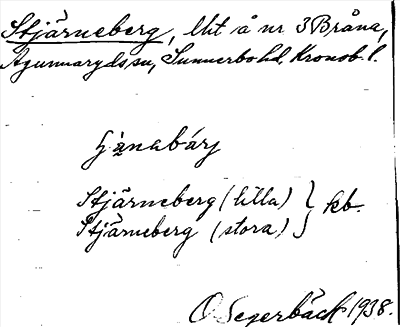 Stjärneberg, lllt å nr 3 Bråna,
Agunnaryds sn, Sunnerbo hd, Kronob. l.
Stjärneberg (lilla) } kb.
Stjärneberg (stora)
O Segerbäck 1938.